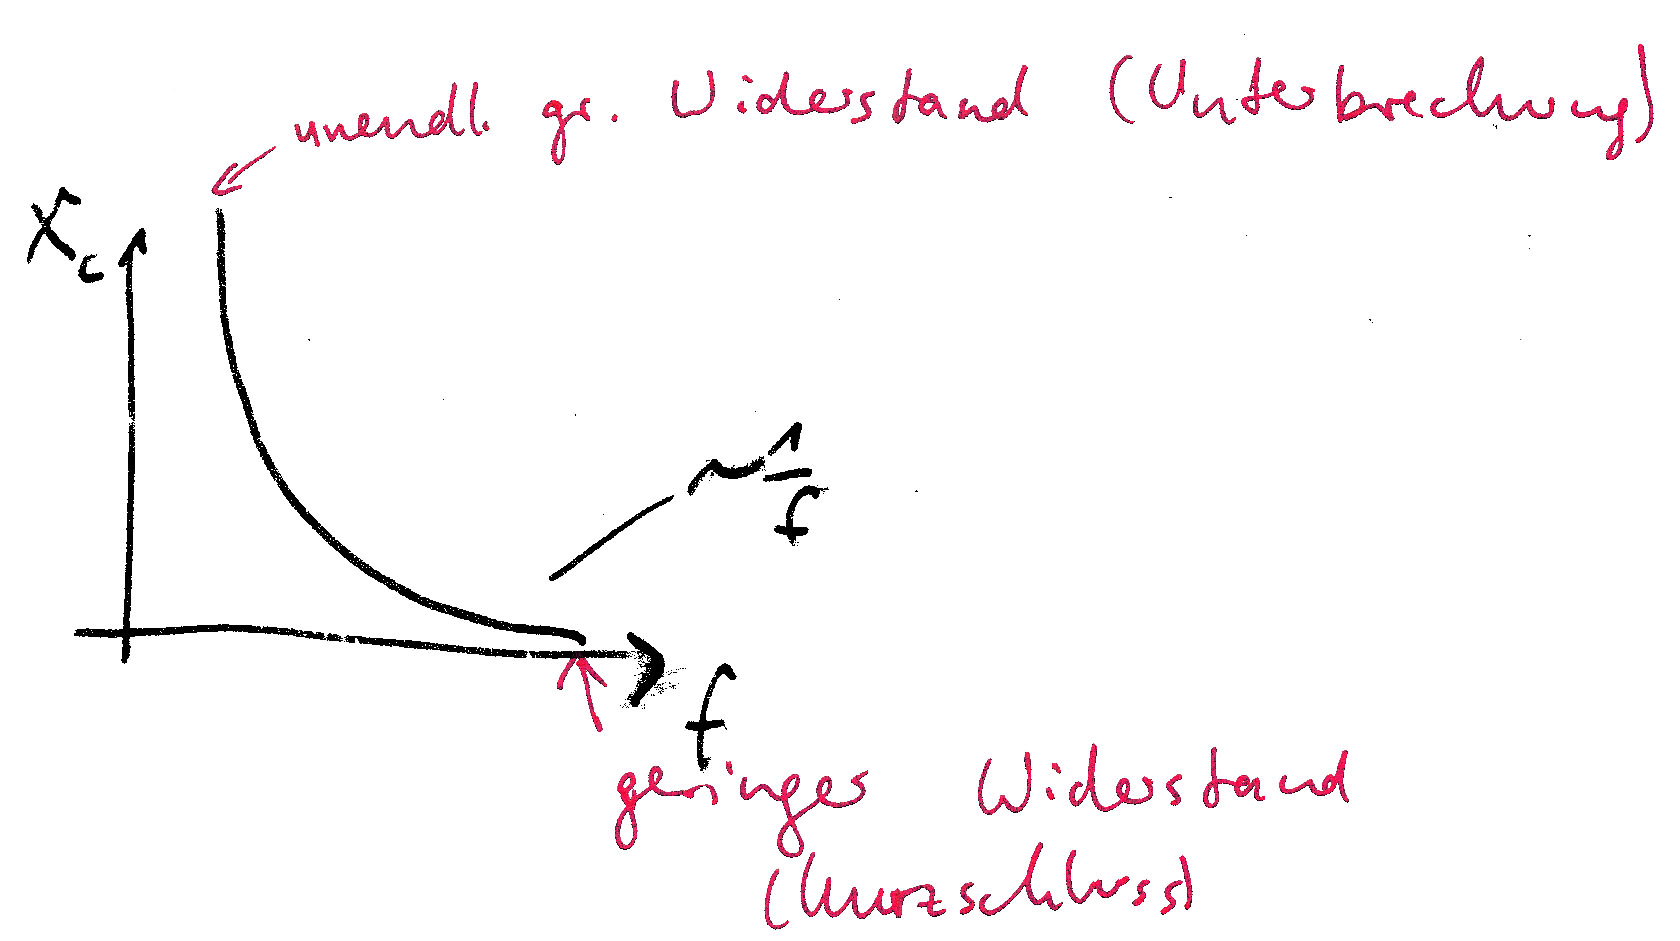 unendl. gr. Widerstand (Unterbrechung)
Xc
~ 1/f
f
geringer Widerstand
(Kurzschluss)